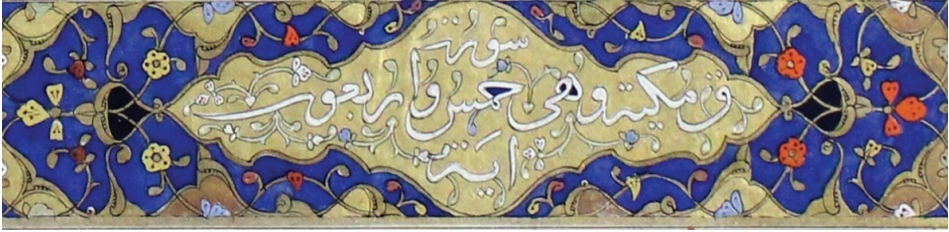 سورة
ق مكية وهى خمس واربعون
اية